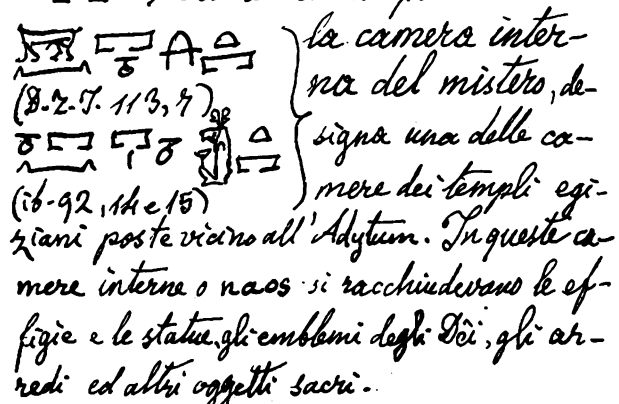 la camera inter-
na del mistero, de-
(D.Z.I. 113,7)
signa una delle ca-
mere dei templi egi-
(ib. 92, 14 e 15)
ziani poste vicino all'Adytum. In queste ca-
mere interne o naos si racchiudevano le ef-
figie e le statue, gli emblemi degli Dèi, gli ar-
redi ed altri oggetti sacri.-